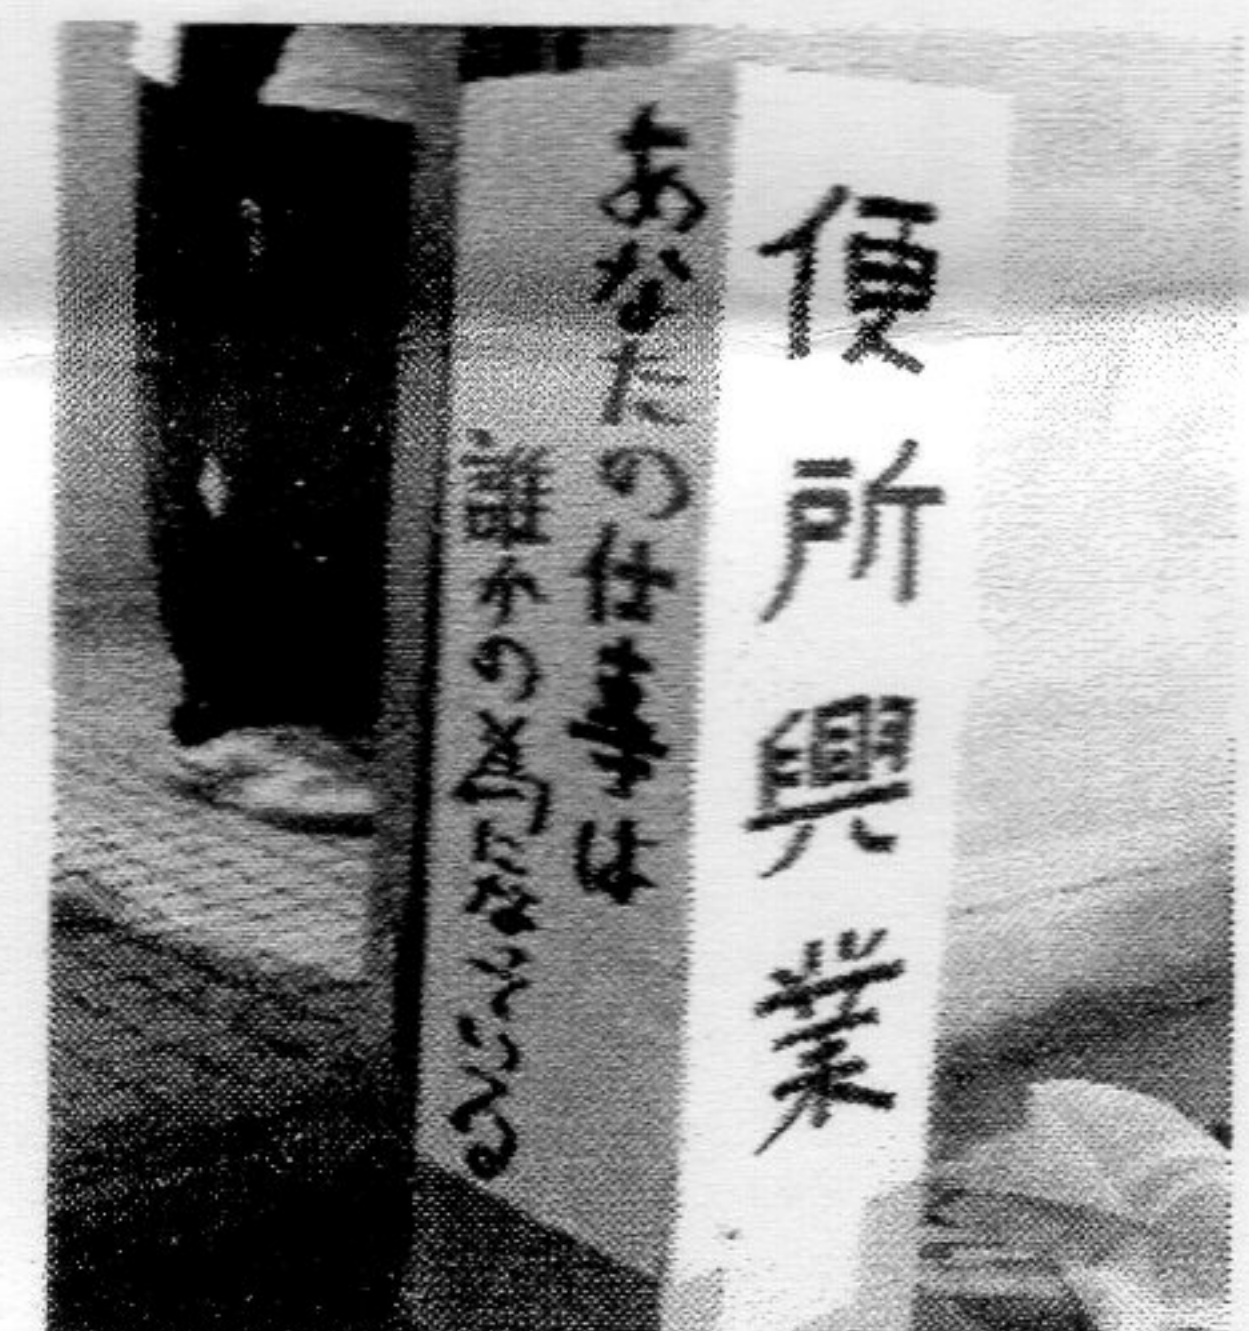 便所興業
あなたの仕事は
誰かの為になっている